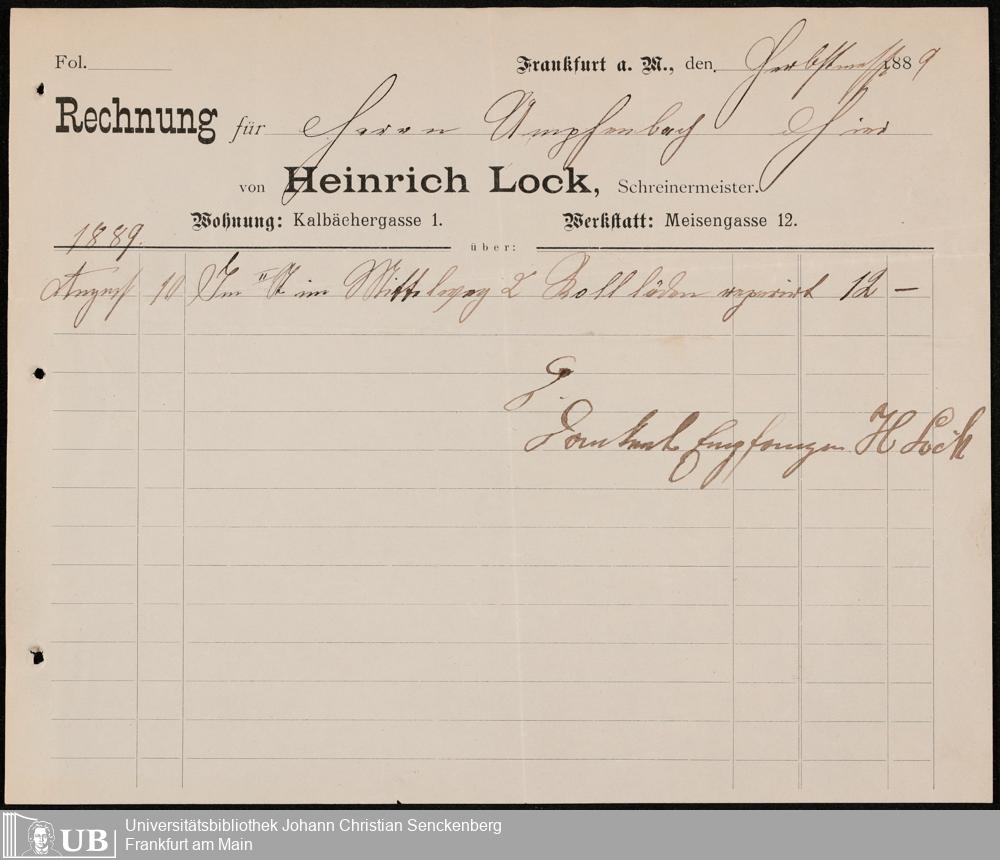 Fol.
Frankfurt a. M., den Herbstmesse 1889
Rechnung für Herrn Umpfenbach Hier
von Heinrich Lock, Schreinermeister.
Wohnung: Kalbächergasse 1. Werkstatt: Meisengasse 12.
1889. über:
August 10 Im im Mittelweg 2 Rollläden reparirt 12 —
Dankend Empfangen H Lock
Universitätsbibliothek Johann Christian Senckenberg
UB Frankfurt am Main